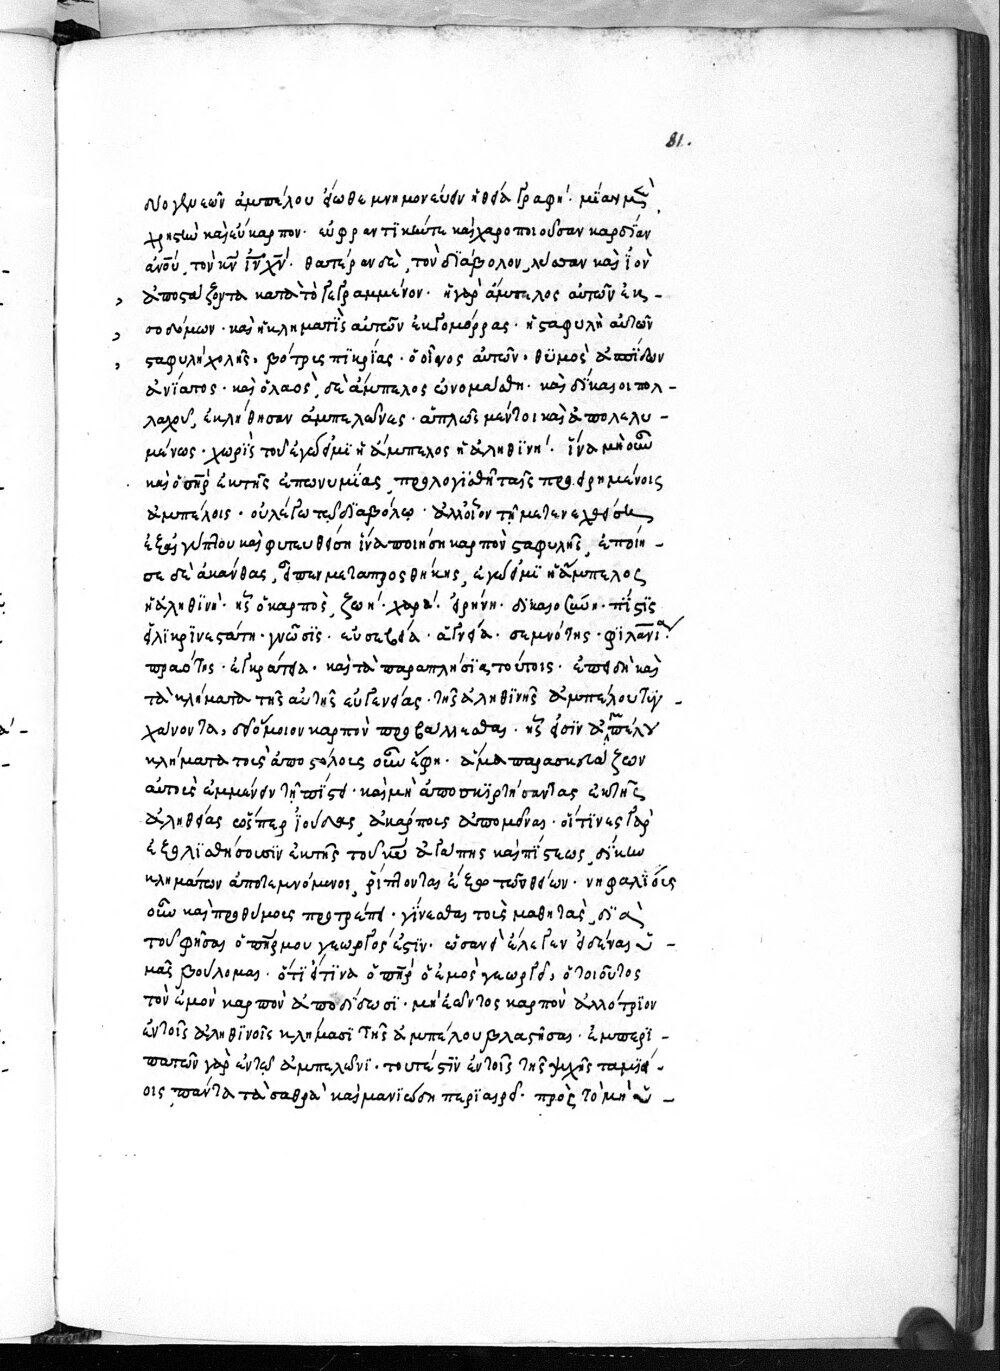 81.
δύο γένεσιν ἀμπέλου εἴωθε μνημονεύειν ἡ θεία γραφή· μίαν μὲν
χρηστὴν καὶ εὔκαρπον· εὐφραντικὴν τε καὶ χαροποιοῦσαν καρδίαν
ἀνου, τὸν κν ιν χν· θατέραν δὲ, τὸν διάβολον, λύπαν καὶ ἰὸν
ἀποστάζοντα κατὰ τὸ γεγραμμένον· ἡ γὰρ ἄμπελος αὐτῶν ἐκ –
σοδόμων· καὶ ἡ κληματὶς αὐτῶν ἐκ γομόρρας· ἡ σταφυλὴ αὐτῶν
σταφυλὴ χολῆς, βότρυς πικρίας· ὁ οἶνος αὐτῶν, θυμὸς ἀσπίδων
ἀνίατος· καὶ ὁ λαὸς δὲ ἄμπελος ὠνομάσθη· καὶ δίκαιοι πολ –
λαχοῦ, ἐκλήθησαν ἀμπελῶνες· ἁπλῶς μέντοι καὶ ἀπολελυ –
μένως· χωρὶς τοῦ ἐγώ εἰμι ἡ ἄμπελος ἡ ἀληθινή· ἵνα μὴ οὖν
καὶ ὁ σηρ ἐκ τῆς ἐπωνυμίας, προλογισθῆ ταῖς προειρημένοις
ἀμπέλοις· οὐ λέγω τῷ διαβόλῳ· ἀλλ' οἷον τῇ μετενεχθείσῃ
ἐξ αἰγύπτου καὶ φυτευθείσῃ ἵνα ποιήσῃ καρπὸν σταφυλῆς, ἐποίη –
σε δὲ ἀκάνθας, εἶπεν μετὰ προσθήκης, ἐγώ εἰμι ἡ ἄμπελος
ἡ ἀληθινή· ἧς ὁ καρπὸς, ζωή· χαρά· εἰρήνη· δικαιοσύνη· πίστις
εἰλικρινεστάτη· γνῶσις· εὐσέβεια· ἁγνεία· σεμνότης· φιλανία·
πραότης· ἐγκράτεια· καὶ τὰ παραπλήσια τούτοις· ἐπειδὴ καὶ
τὰ κλήματα τῆς αὐτῆς εὐγενείας· τῆς ἀληθινῆς ἀμπέλου τυγ –
χάνοντα, ὅμοιον καρπὸν προβάλλεσθαι· ἧς εἰσὶν ἀμπέλου
κλήματα τοῖς ἀποστόλοις οὖν ἔφη· ἅμα παρασκευάζων
αὐτοὺς ἐμμένειν τῇ πίστει· καὶ μὴ ἀποσκιρτήσαντας ἐκ τῆς
ἀληθείας ὥσπερ ἰούδας, ἀκάρπους ἀπομεῖναι· οἵτινες γὰρ
ἐξολισθήσουσιν ἐκ τῆς τοῦ κυ ἀγάπης καὶ πίστεως, δίκην
κλημάτων ἀποτεμνόμενοι, ῥίπτονται ἔξω τῶν θείων· νηφαλίους
οὖν καὶ προθύμους προτρέπει· γίνεσθαι τοὺς μαθητὰς, διὰ
τοῦ φῆσαι ὁ πηρ μου γεωργός ἐστιν· ὡσανεὶ ἔλεγεν εἰδέναι ὑ –
μᾶς βούλομαι· ὅτι εἴ τινα ὁ πηρ ὁ ἐμὸς γεωργεῖ, ὁ τοιοῦτος
τὸν ἐμὸν καρπὸν ἀποδίδωσι· μὴ ἐῶντος καρπὸν ἀλλότριον
ἐν τοῖς ἀληθινοῖς κλήμασι τῆς ἀμπέλου βλαστῆσαι· ἐμπερι –
πατῶν γὰρ ἐν τῷ ἀμπελῶνι· τουτέστιν ἐν τοῖς τῆς ψυχῆς ταμιεί –
οις πάντα τὰ σαθρὰ καὶ μανιώδη περιαιρεῖ· πρὸς τὸ μὴ ὑ –